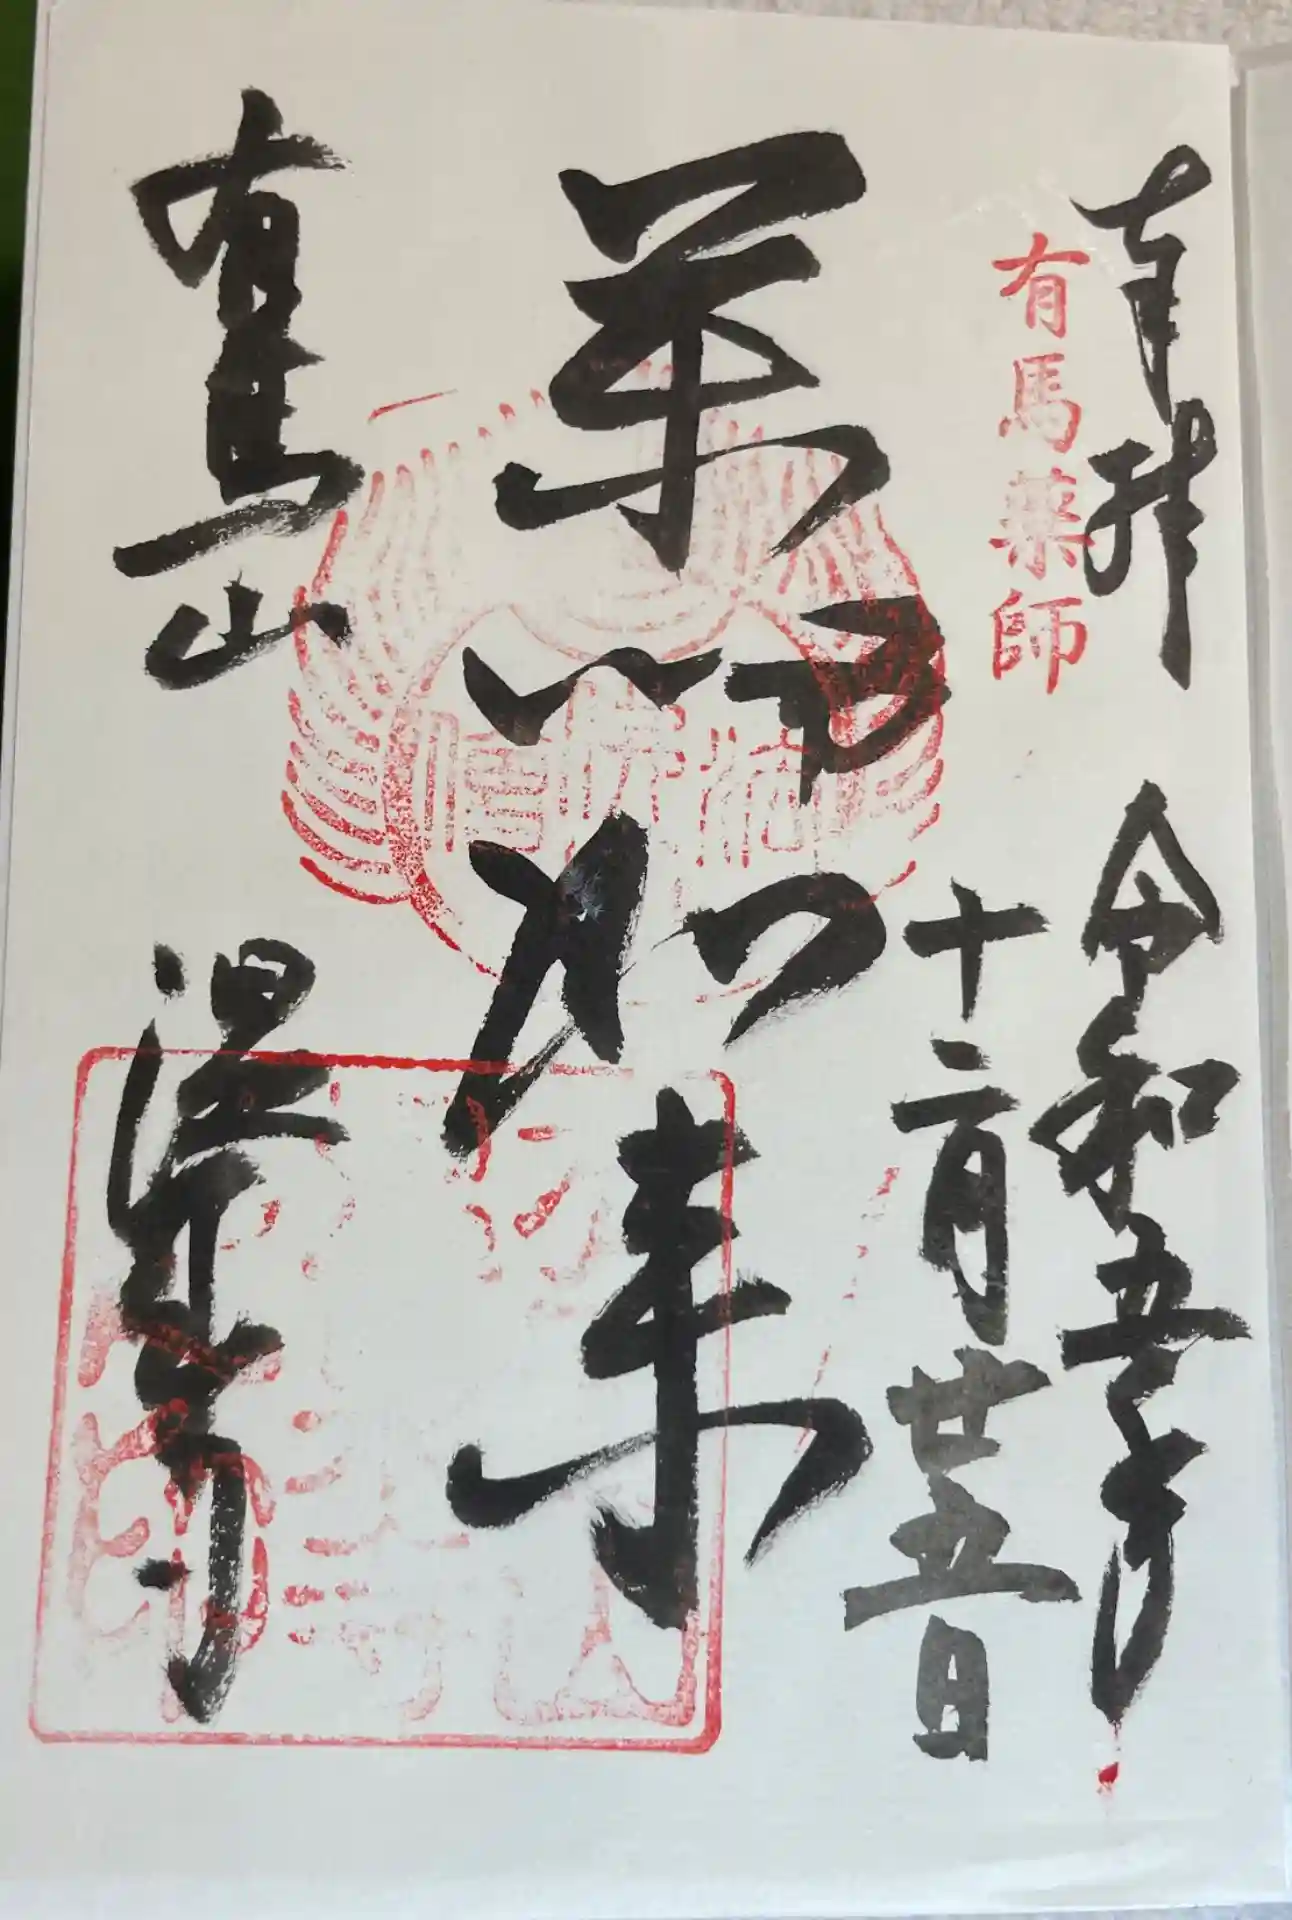 奉拝
令和五年
有馬薬師
十二月廿五日
薬師如来
有馬山
温泉寺